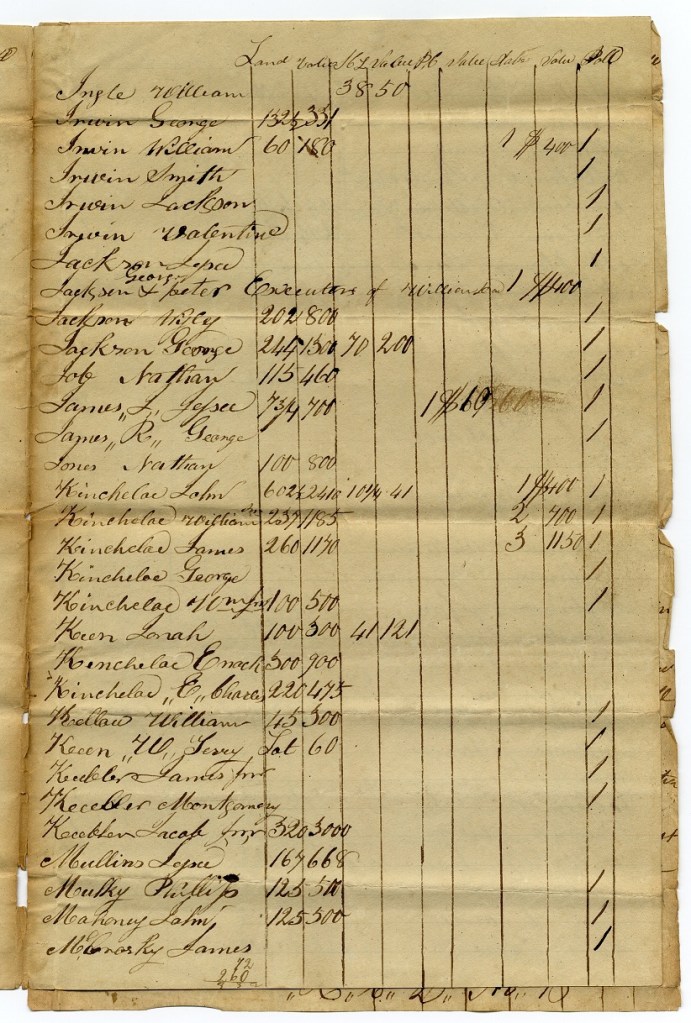 Land Value S.L Value P.C Value Slave Value Poll
Ingle William 38 50
Irwin George 132½ 331
Irwin William 60 180 1 $ 400 1
Irwin Smith 1
Irwin Jackson 1
Irwin Valentine 1
Jackson Jesse 1
George
Jackson & Peter Executors of 1 $400
Jackson Wiley 202 800 1
Jackson George 244 1300 70 200 1
Job Nathan 115 460 1
James ,,J,, Jesse 73¼ 700 1 $60 1
James ,,R,, George 1
Jones Nathan 100 800
Kincheloe John 602½ 2410 10¼ 41 1 $400 1
Kincheloe William 237 1185 2 700 1
Kincheloe James 260 1170 3 1150 1
Kincheloe George 1
Kincheloe Wm Jnr 100 500 1
Keen Jonah 100 300 41 121
Kincheloe Enoch 300 900
Kincheloe ,,E,, Charles 220 475
Kellaw William 45 300 1
Keen ,,W,, Terry Lot 60 1
Keebler James 1
Keebler Montgomery 1
Keebler Jacob 320 3000
Mullins Jesse 167 668
Mulky Phillip 125 510 1
Mahoney John 125 500 1
McCrosky James 1
72
260